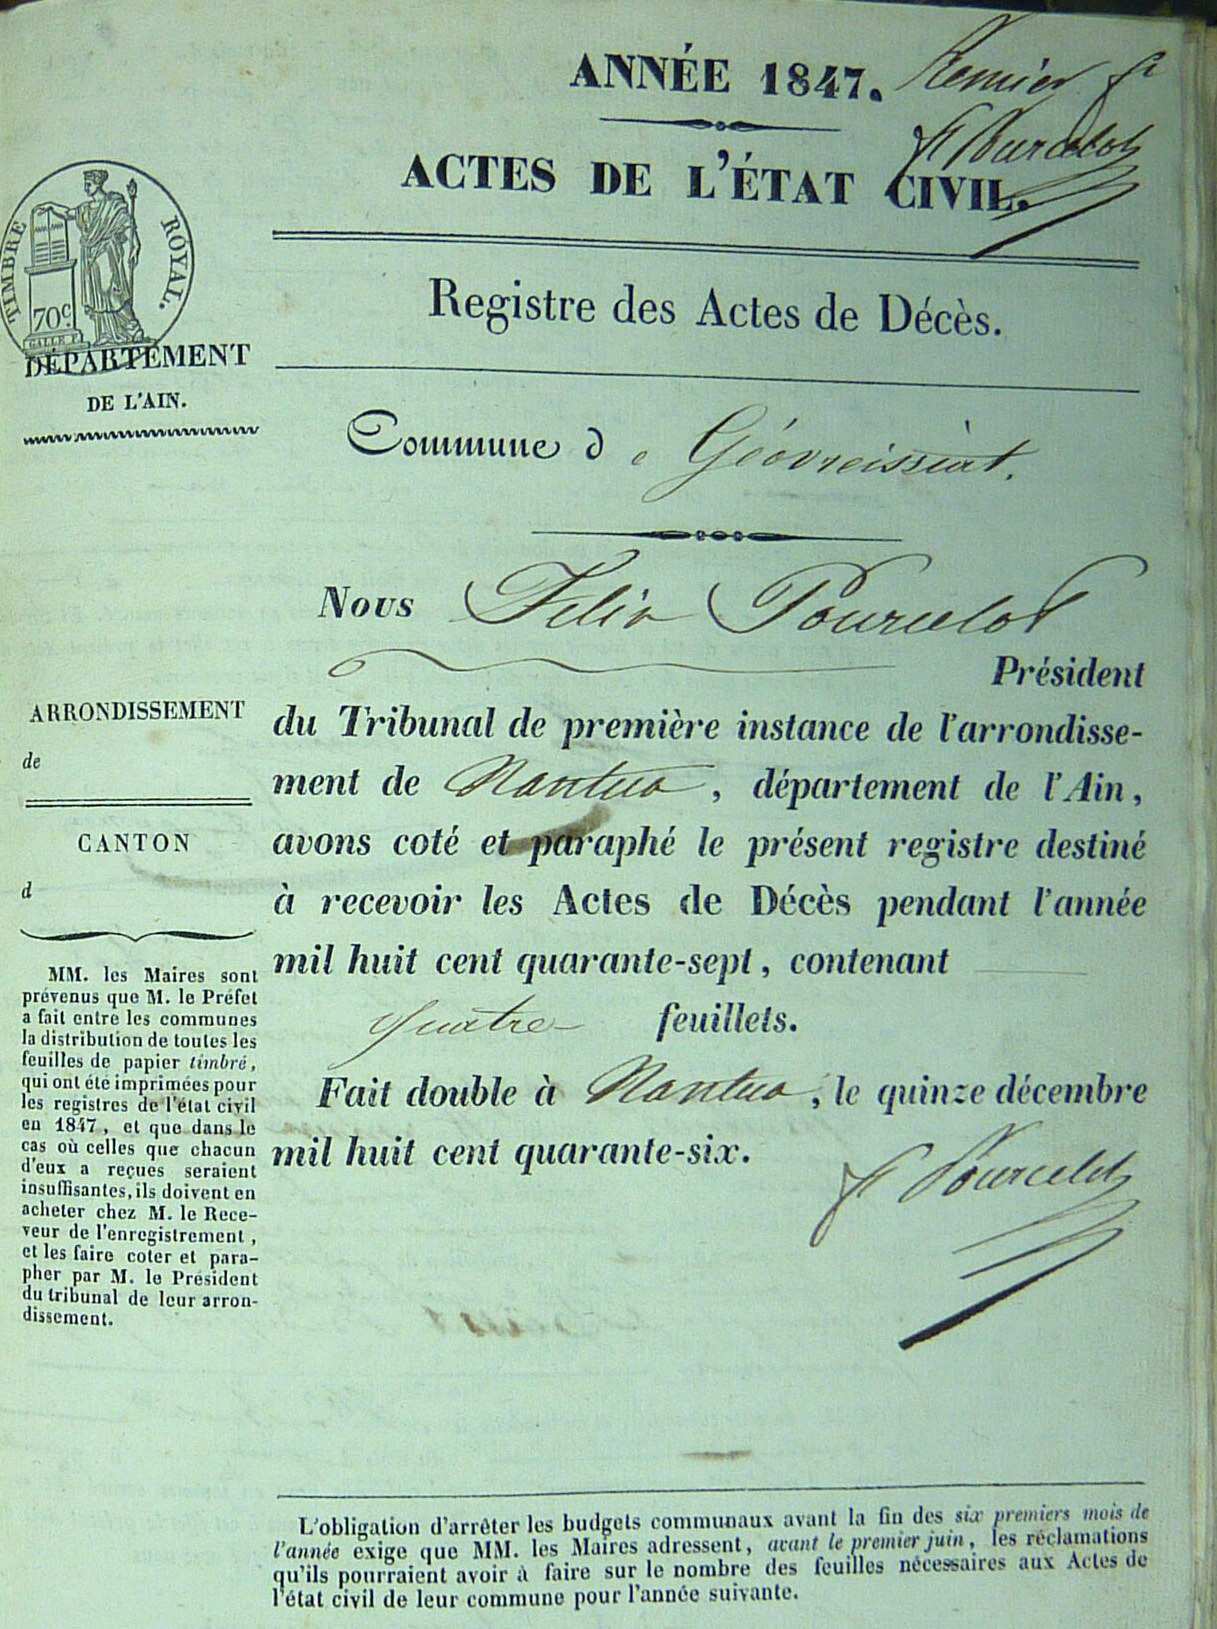 ANNÉE 1847.
Pourcelot
ACTES DE L'ÉTAT CIVIL.
TIMBRE ROYAL.
70c
GALLE F.
Registre des Actes de Décès.
DÉPARTEMENT
DE L'AIN.
Commune de Géovreissiat.
Nous Felix Pourcelot
Président
du Tribunal de première instance de l'arrondisse-
ment de Nantua, département de l'Ain,
avons coté et paraphé le présent registre destiné
à recevoir les Actes de Décès pendant l'année
mil huit cent quarante-sept, contenant
quatre feuillets.
Fait double à Nantua, le quinze décembre
mil huit cent quarante-six.
Pourcelot
ARRONDISSEMENT
de
CANTON
d
MM. les Maires sont
prévenus que M. le Préfet
a fait entre les communes
la distribution de toutes les
feuilles de papier timbré,
qui ont été imprimées pour
les registres de l'état civil
en 1847, et que dans le
cas où celles que chacun
d'eux a reçues seraient
insuffisantes, ils doivent en
acheter chez M. le Rece-
veur de l'enregistrement,
et les faire coter et para-
pher par M. le Président
du tribunal de leur arron-
dissement.
L'obligation d'arrêter les budgets communaux avant la fin des six premiers mois de
l'année exige que MM. les Maires adressent, avant le premier juin, les réclamations
qu'ils pourraient avoir à faire sur le nombre des feuilles nécessaires aux Actes de
l'état civil de leur commune pour l'année suivante.